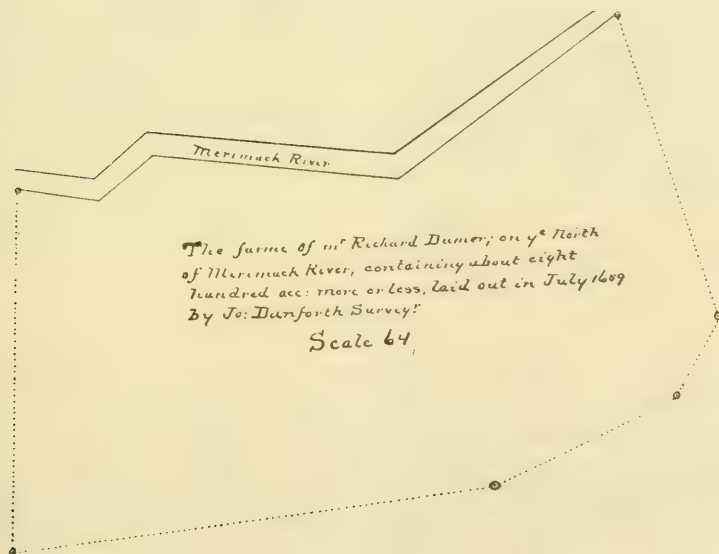 Merimack River
The farme of mr Richard Dumer; on ye North
of Merimack River, containing about eight
hundred acc: more or less, laid out in July
by Jo: Danforth Survey.r
Scale 64